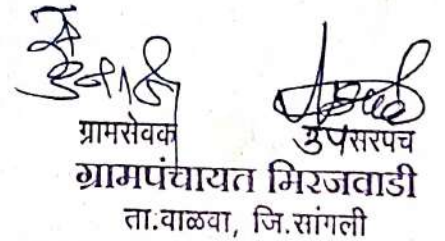 ग्रामसेवक उपसरपंच
ग्रामपंचायत मिरजवाडी
ता.वाळवा, जि.सांगली